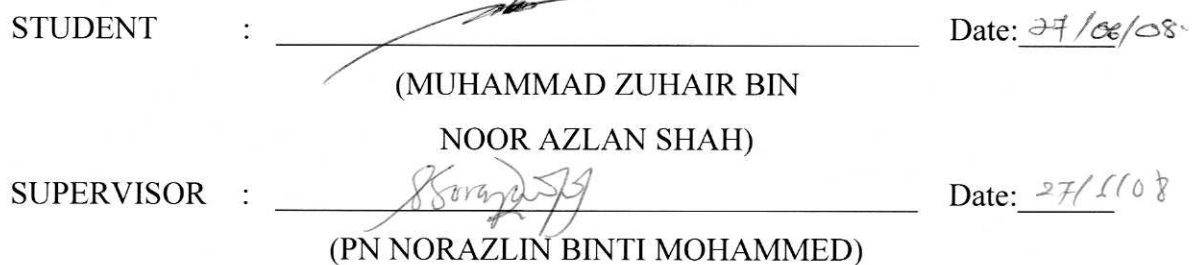 STUDENT : Date: 27/06/08
(MUHAMMAD ZUHAIR BIN
NOOR AZLAN SHAH)
SUPERVISOR : Date:
(PN NORAZLIN BINTI MOHAMMED)